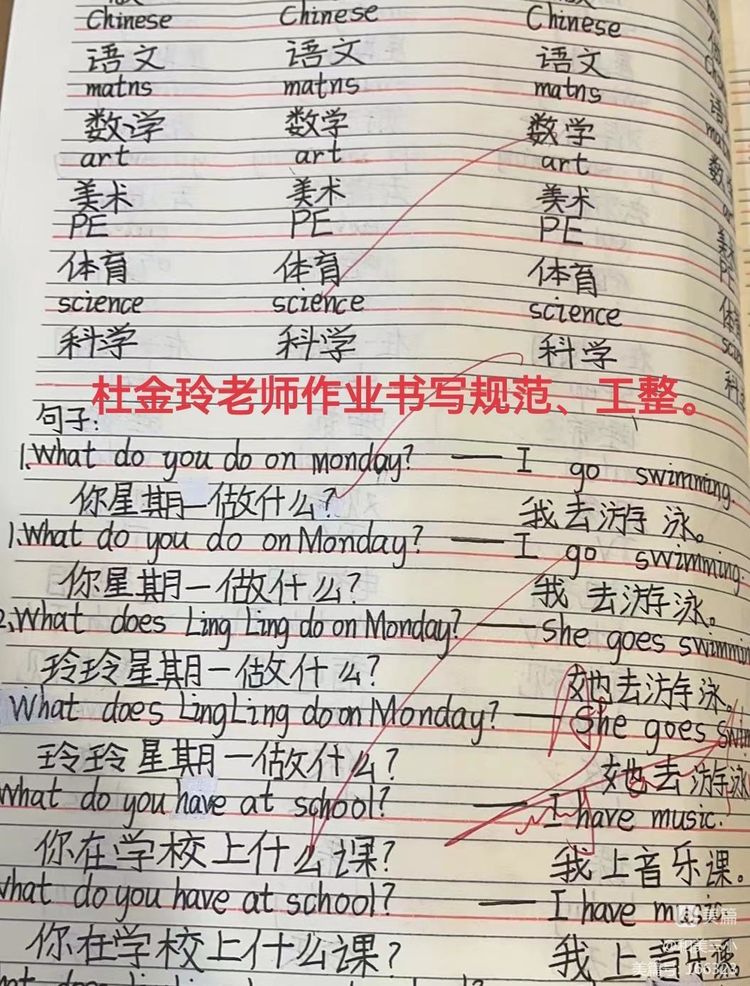 Chinese Chinese Chinese
语文 语文 语文
matns matns matns
数学 数学 数学
art art art
美术 美术 美术
PE PE PE
体育 体育 体育
science science science
科学 科学 科学
杜金玲老师作业书写规范、工整。
句子:
1.What do you do on monday? — I go swimming.
你星期一做什么? 我去游泳。
1.What do you do on Monday? — I go swimming.
你星期一做什么? 我去游泳。
2.What does Ling Ling do on Monday? — She goes swimmin
玲玲星期一做什么? 她去游泳。
What does LingLing do on Monday? — She goes swim
玲玲星期一做什么? 她去游泳
What do you have at school? — I have music.
你在学校上什么课? 我上音乐课。
What do you have at school? — I have music
你在学校上什么课? 我上音乐课
美篇
@和美三小
美篇号: 166323